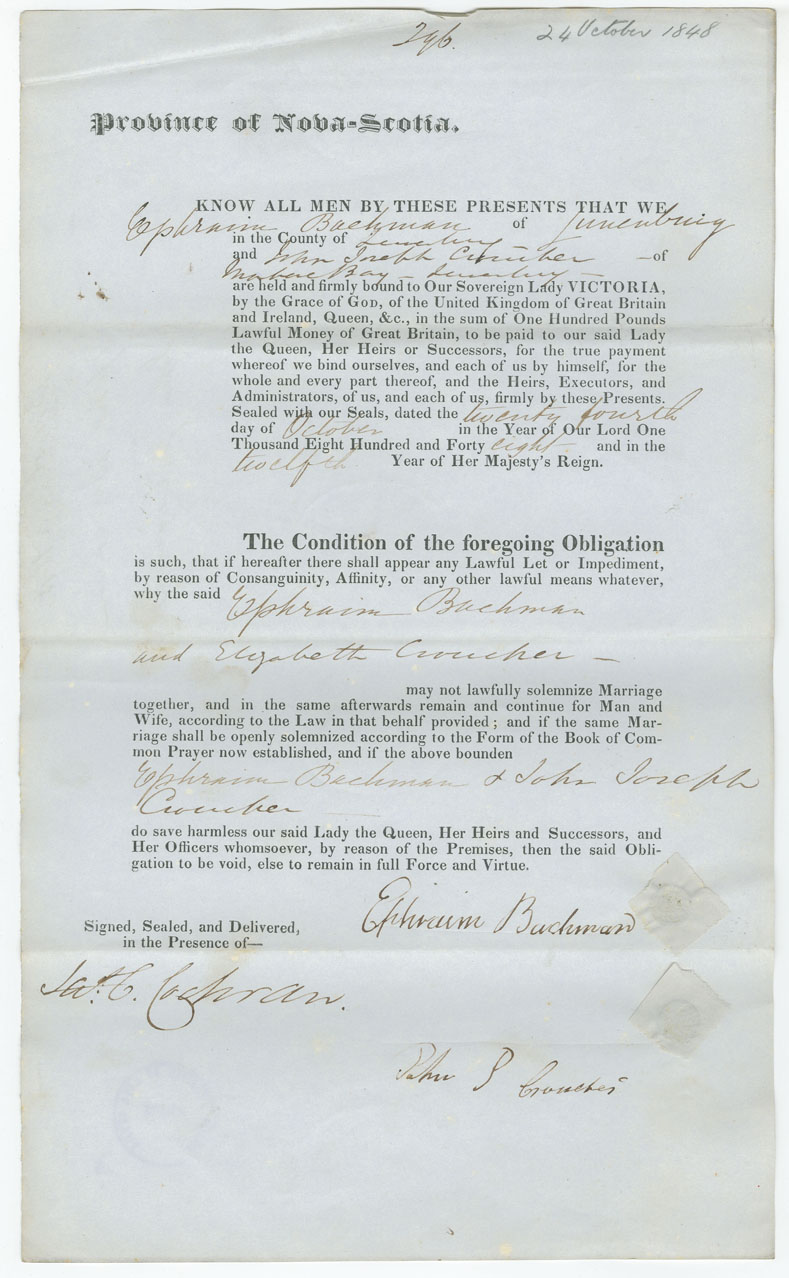 296.
24 October 1848
Province of Nova-Scotia.
KNOW ALL MEN BY THESE PRESENTS THAT WE
Ephraim Bachman of Lunenburg
in the County of Lunenburg
and John Joseph Croucher — of
Bay — Lunenburg —
are held and firmly bound to Our Sovereign Lady VICTORIA,
by the Grace of GOD, of the United Kingdom of Great Britain
and Ireland, Queen, &c., in the sum of One Hundred Pounds
Lawful Money of Great Britain, to be paid to our said Lady
the Queen, Her Heirs or Successors, for the true payment
whereof we bind ourselves, and each of us by himself, for the
whole and every part thereof, and the Heirs, Executors, and
Administrators, of us, and each of us, firmly by these Presents.
Sealed with our Seals, dated the twenty fourth
day of October in the Year of Our Lord One
Thousand Eight Hundred and Forty eight and in the
twelfth Year of Her Majesty's Reign.
The Condition of the foregoing Obligation
is such, that if hereafter there shall appear any Lawful Let or Impediment,
by reason of Consanguinity, Affinity, or any other lawful means whatever,
why the said Ephraim Bachman
and Elizabeth Croucher —
may not lawfully solemnize Marriage
together, and in the same afterwards remain and continue for Man and
Wife, according to the Law in that behalf provided; and if the same Mar-
riage shall be openly solemnized according to the Form of the Book of Com-
mon Prayer now established, and if the above bounden
Ephraim Bachman & John Joseph
Croucher
do save harmless our said Lady the Queen, Her Heirs and Successors, and
Her Officers whomsoever, by reason of the Premises, then the said Obli-
gation to be void, else to remain in full Force and Virtue.
Ephraim Bachman
Signed, Sealed, and Delivered,
in the Presence of—
Jas. C. Cochran.
John J Croucher